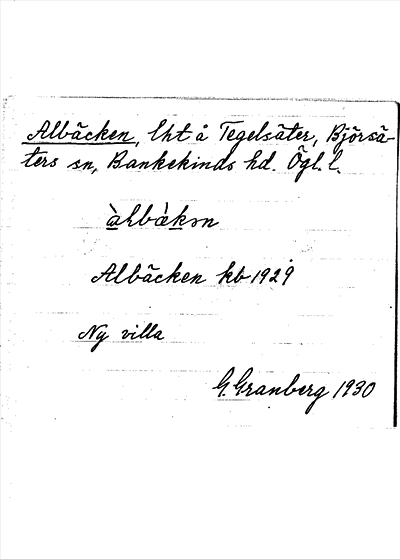 Albäcken, lht å Tegelsäter, Björsä-
ters sn, Bankekinds hd. Ögl. l.
àlbằkən
Albäcken kb 1929
Ny villa
G. Granberg 1930